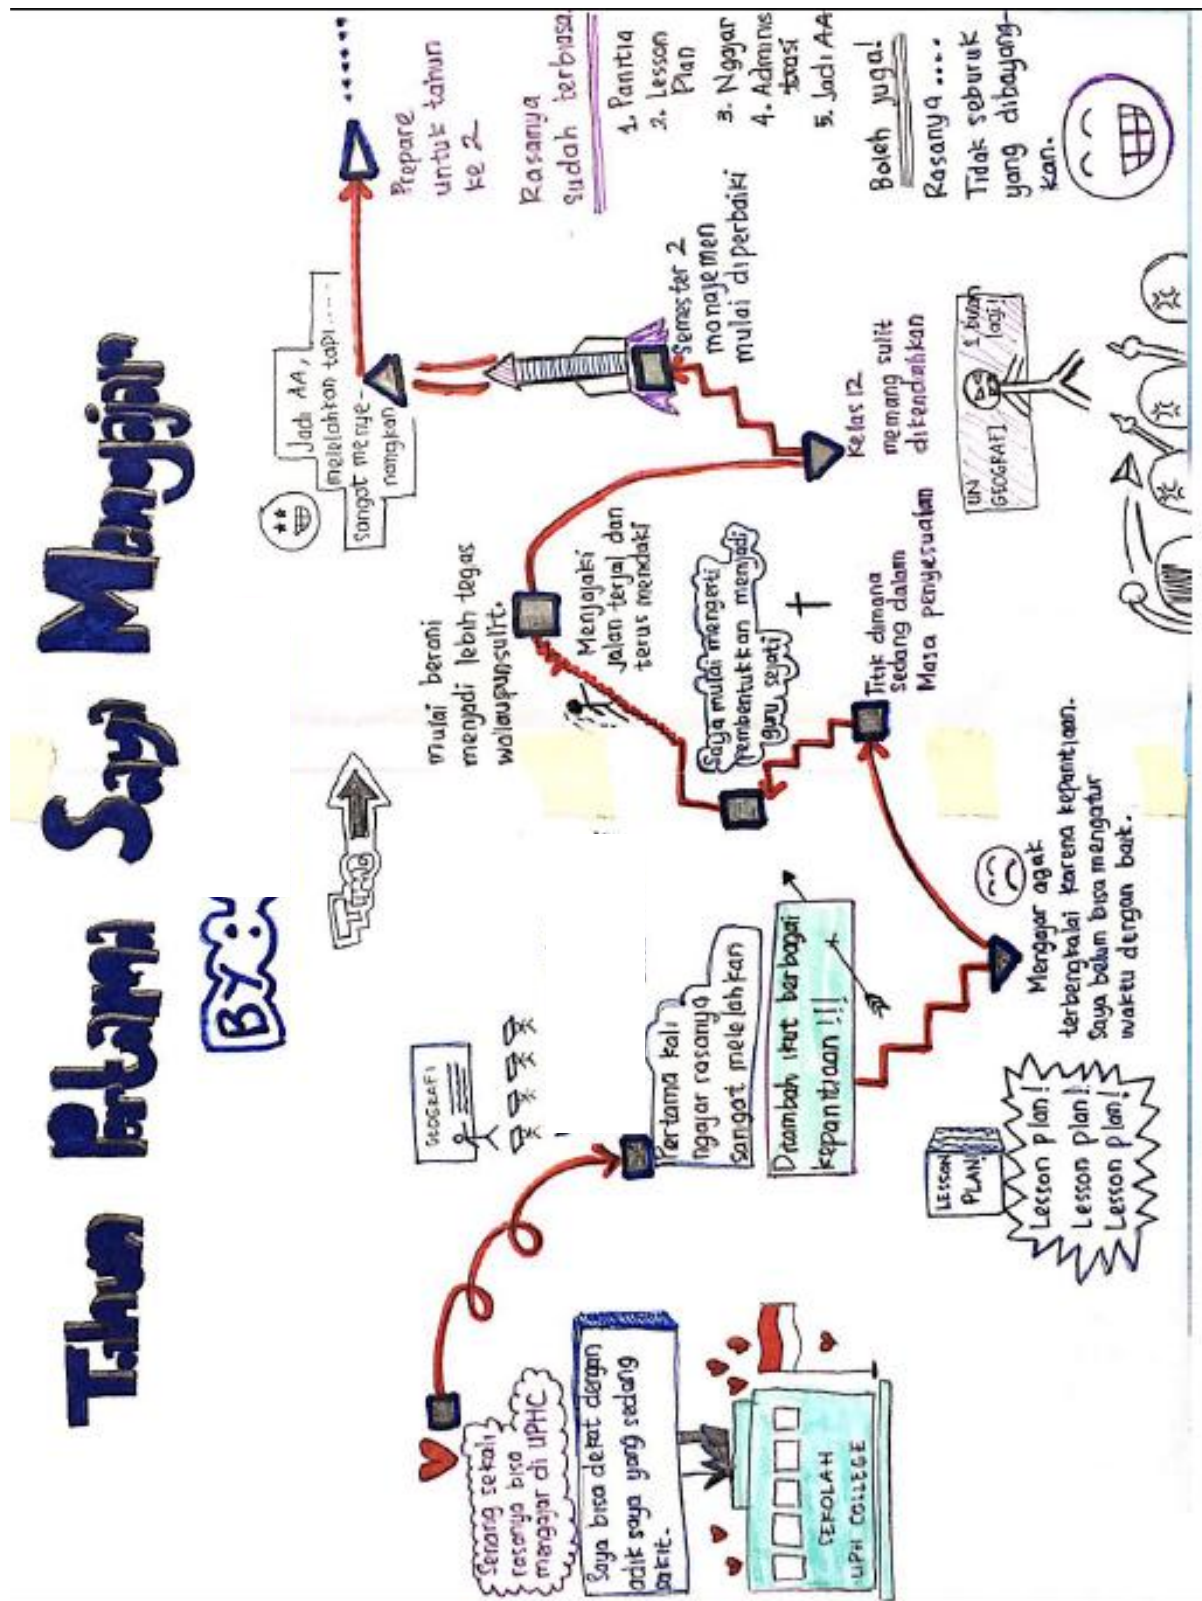 Tahun Pertama Saya Mengajar
BY:
Timeline
Senang sekali
rasanya bisa
mengajar di UPHC
Saya bisa dekat dengan
adik saya yang sedang
sakit.
SEKOLAH
UPH COLLEGE
GEOGRAFI
Pertama kali
ngajar rasanya
sangat melelahkan
Ditambah ikut berbagai
kepanitiaan!!!
LESSON
PLAN!
Lesson plan!
Lesson plan!
Lesson plan!
Mengajar agak
terbengkalai karena kepanitiaan.
Saya belum bisa mengatur
waktu dengan baik.
Titik dimana
sedang dalam
Masa penyesuaian
Saya mulai mengerti
pembentukkan menjadi
guru sejati
Menjajaki
jalan terjal dan
terus mendaki
mulai berani
menjadi lebih tegas
walaupun sulit.
Kelas 12
memang sulit
dikendalikan
UN
GEOGRAFI
1 bulan
lagi!
Semester 2
manajemen
mulai diperbaiki
Jadi AA,
melelahkan tapi.....
sangat menye-
nangkan
Prepare
untuk tahun
ke 2
Rasanya
sudah terbiasa
1. Panitia
2. Lesson
Plan
3. Ngajar
4. Adminis
trasi
5. Jadi AA
Boleh juga!
Rasanya....
Tidak seburuk
yang dibayang-
kan.